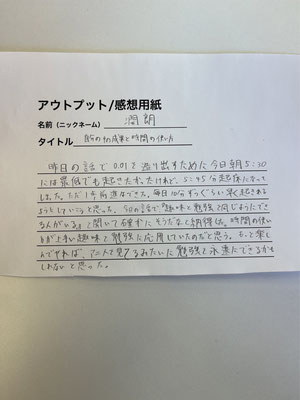 アウトプット/感想用紙
名前（ニックネーム） 潤朗
タイトル 自分の成果と時間の使い方
昨日の話で0.01を追い出すために今日朝5:30
には最低でも起きたかったけれど、5:45分起床になって
しまった。ただ1年前進はできた。毎日10分ずつぐらい早く起きれる
ようにしていこうと思った。今日の話で「趣味と勉強って同じようにでき
るんがいる。」と聞いて確かにそうだなと納得した。時間の使い
方が上手い趣味を勉強に応用していたのだと思う。もっと楽し
んでやれば、アニメで見てるみたいに勉強も永遠にできるかも
しれないと思った。